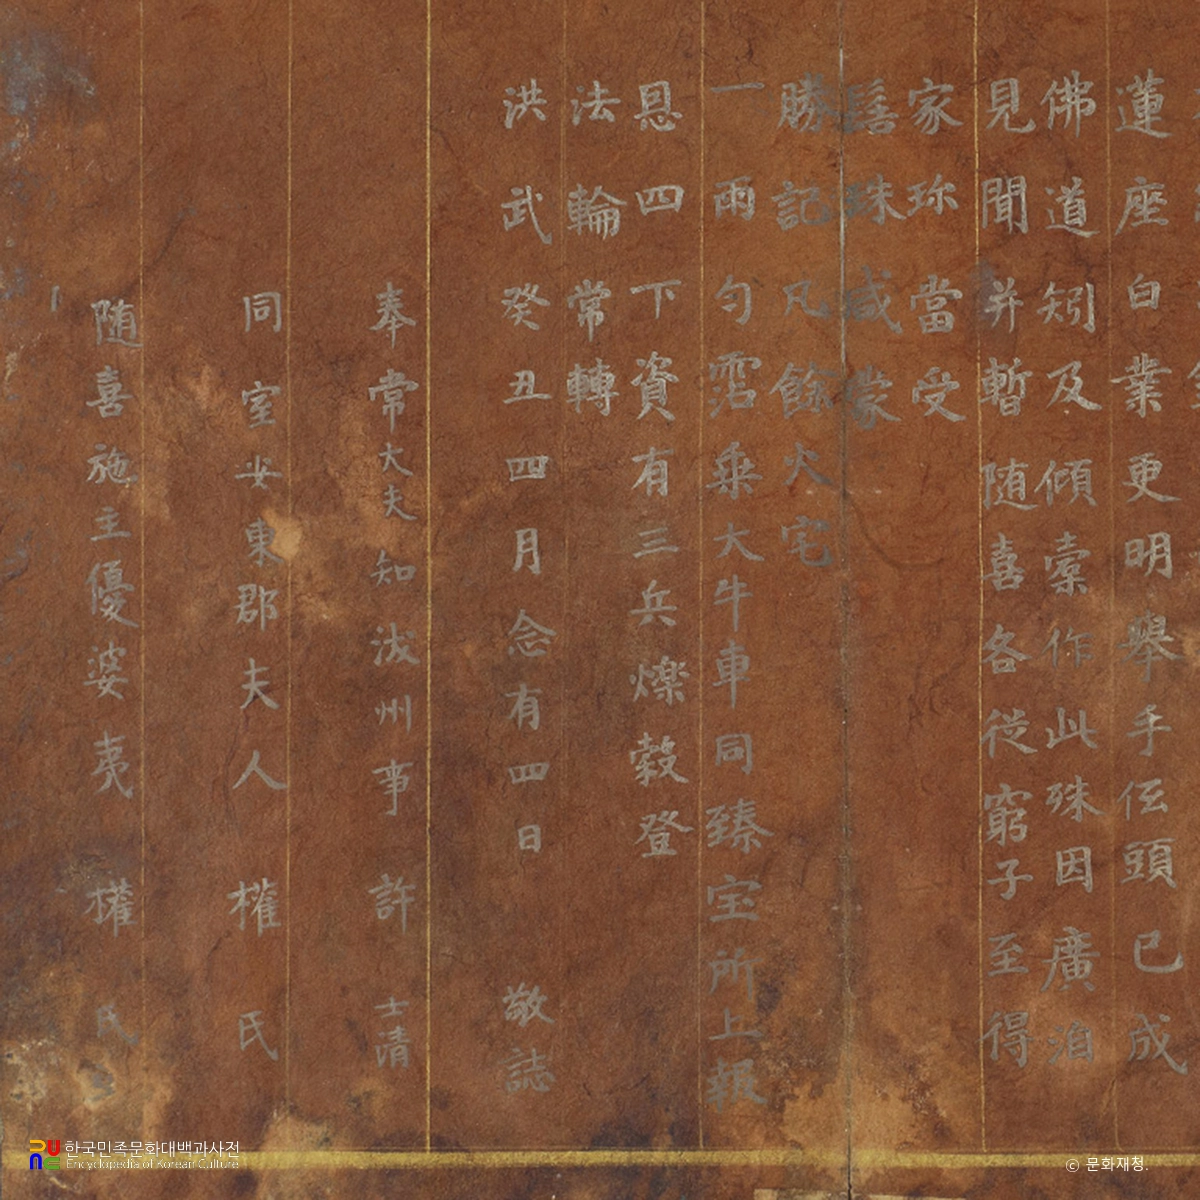 蓮座白業更明擧手伍頭已成
佛道矧及傾橐作此殊因廣洎
見聞并暫随喜各從窮子至得
家珎當受
髻珠咸蒙
勝記凡餘火宅
一雨匀霑乘大牛車同臻宝所上報
恩四下資有三兵爍穀登
法輪常轉
洪武癸丑四月念有四日 敬誌
奉常大夫知浅州事 許 士清
同室安東郡夫人 權 氏
随喜施主優婆夷 權 氏
한국민족문화대백과사전
Encyclopedia of Korean Culture
© 문화재청.